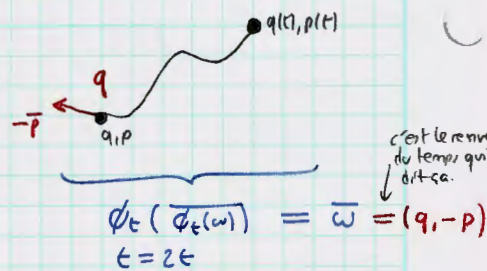 q(t), p(t)
q
-p̅
q,p
c'est le renv
du temps qui
dit ça.
ϕt ( \overline{ϕt(ω)} ) = ω̅ = (q, -p)
t = 2t